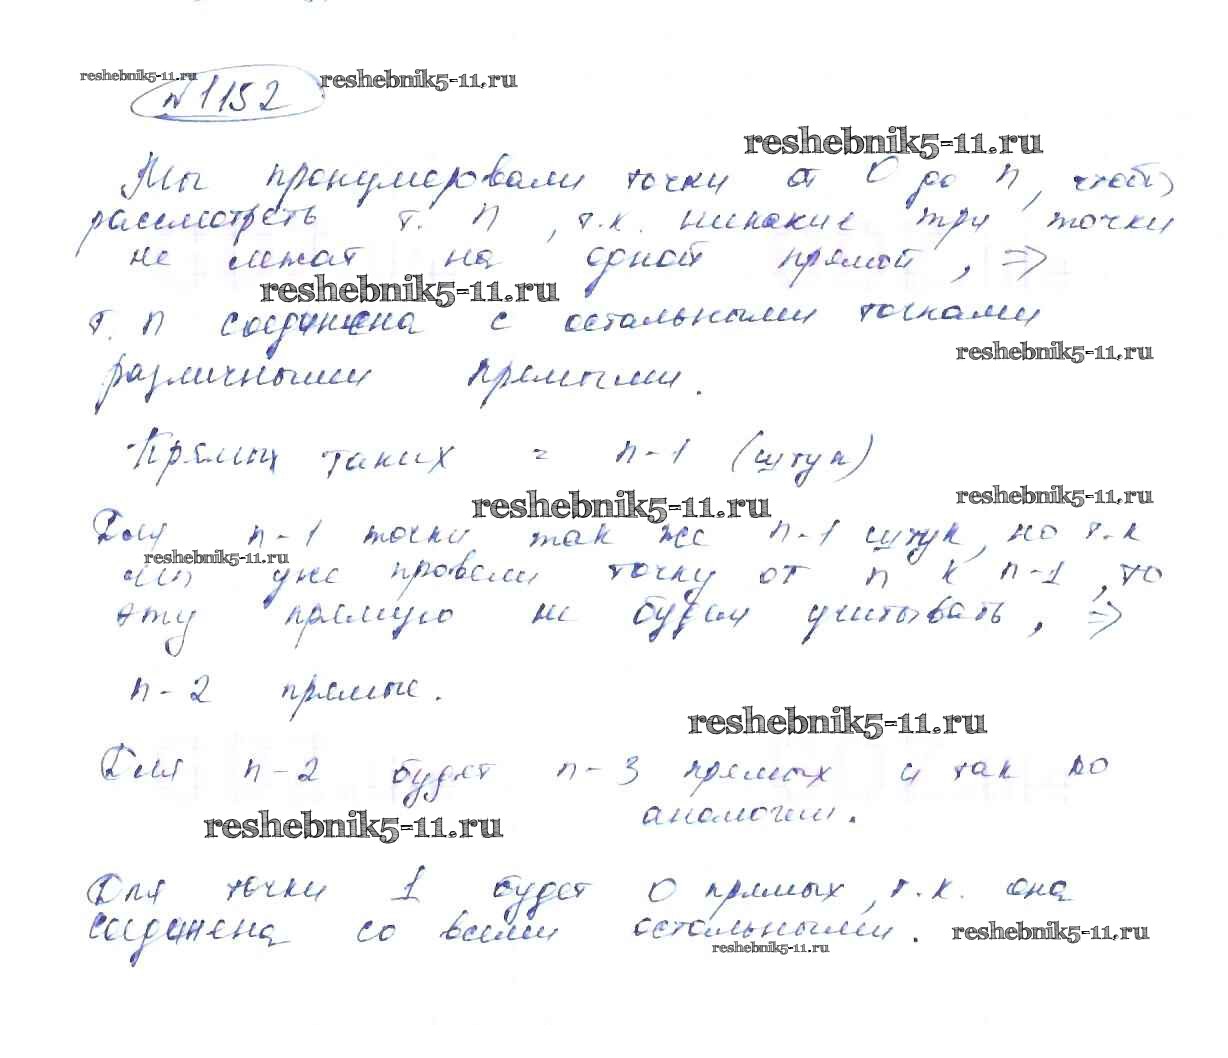 reshebnik5-11.ru reshebnik5-11.ru
№1152
reshebnik5-11.ru
Мы пронумеровали точки от 0 до n, чтобы
рассмотреть т. n, т.к. никакие три точки
не лежат на одной прямой, =>
reshebnik5-11.ru
т. n соединена с остальными точками
reshebnik5-11.ru
различными прямыми.
Прямых таких = n-1 (штук)
reshebnik5-11.ru reshebnik5-11.ru
Для n-1 точки так же n-1 штук, но т.к
reshebnik5-11.ru
мы уже провели точку от n к n-1, то
эту прямую не будем учитывать, =>
n-2 прямые.
reshebnik5-11.ru
Для n-2 будет n-3 прямых и так по
аналогии.
reshebnik5-11.ru
Для точки 1 будет 0 прямых, т.к. она
соединена со всеми остальными.
reshebnik5-11.ru
reshebnik5-11.ru